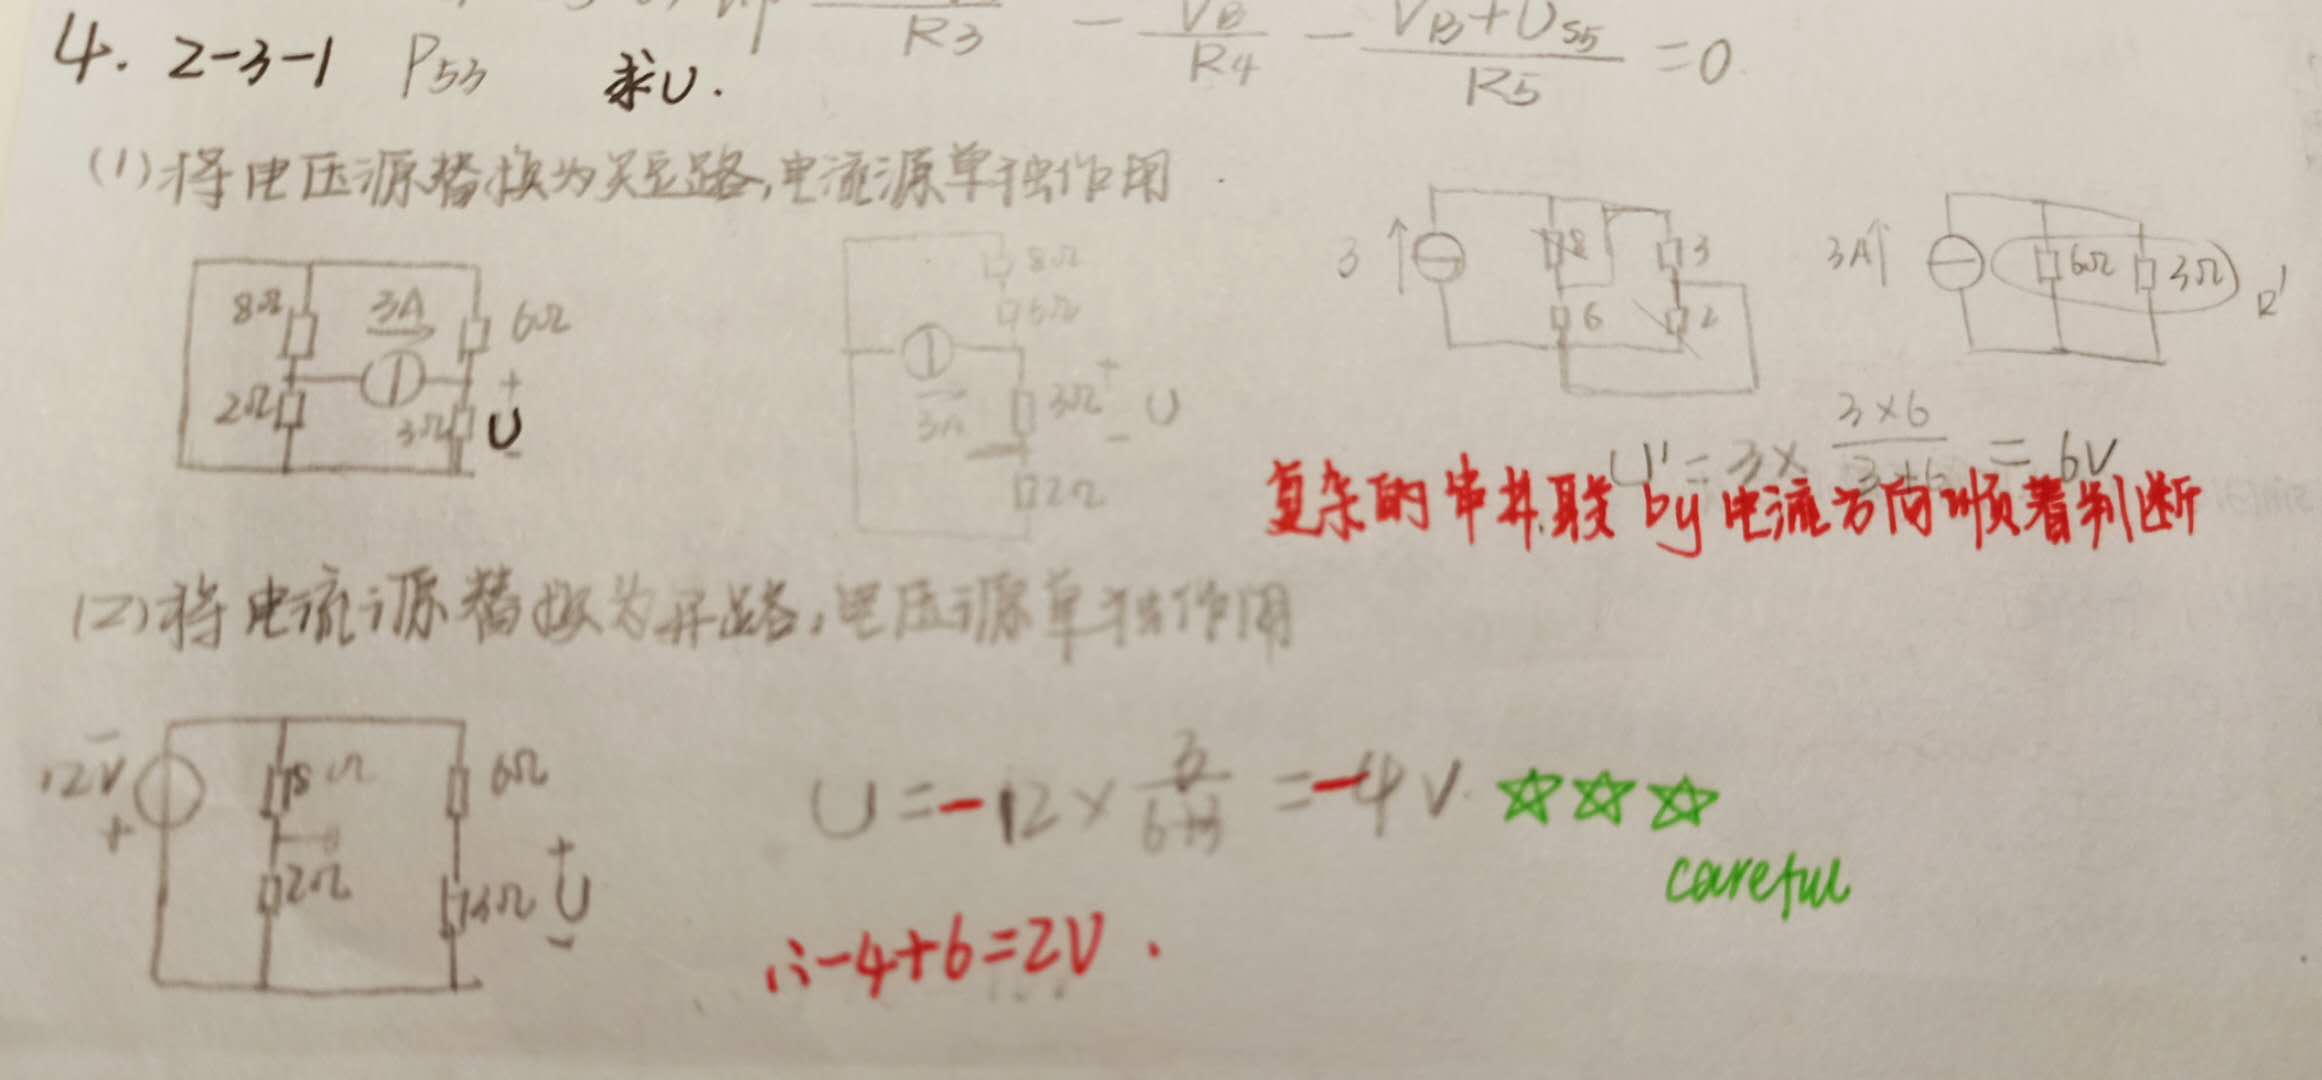 R3 - VB/R4 - VB+US5/R5 =0
4. 2-3-1 P53 求U.
(1)将电压源替换为短路,电流源单独作用
8Ω 3A 6Ω
2Ω 3Ω + U -
8Ω
6Ω
3A 3Ω + U -
2Ω
3 8 3
6 2
3A 6Ω 3Ω R'
U'=3× 3×6/3+6 = 6V
复杂的串并联 by 电流方向顺着判断
(2)将电流源替换为开路,电压源单独作用
- 12V + 8Ω 6Ω
2Ω 3Ω + U -
U=-12× 3/6+3 =-4V. ☆☆☆
careful
∴-4+6=2V.